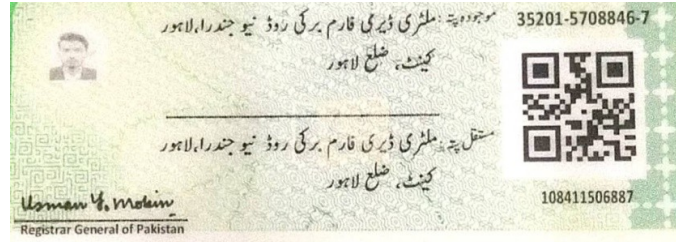 35201-5708846-7
موجودہ پتہ: ملٹری ڈیری فارم برکی روڈ نیو جندرا،لاہور
کینٹ، ضلع لاہور
مستقل پتہ: ملٹری ڈیری فارم برکی روڈ نیو جندرا،لاہور
کینٹ، ضلع لاہور
108411506887
Usman Y. Mobin
Registrar General of Pakistan